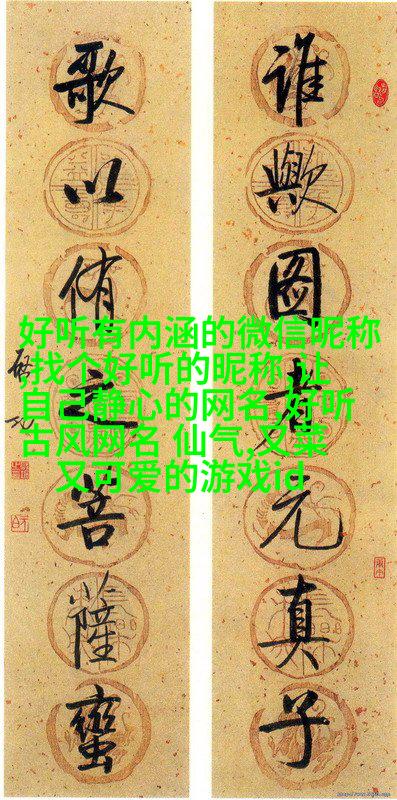 谁歟图者元真子
歌以侑之菩薩蠻
启功
好听有内涵的微信昵称
,找个好听的昵称,让
自己静心的网名,好听
古风网名 仙气,又菜
又可爱的游戏id